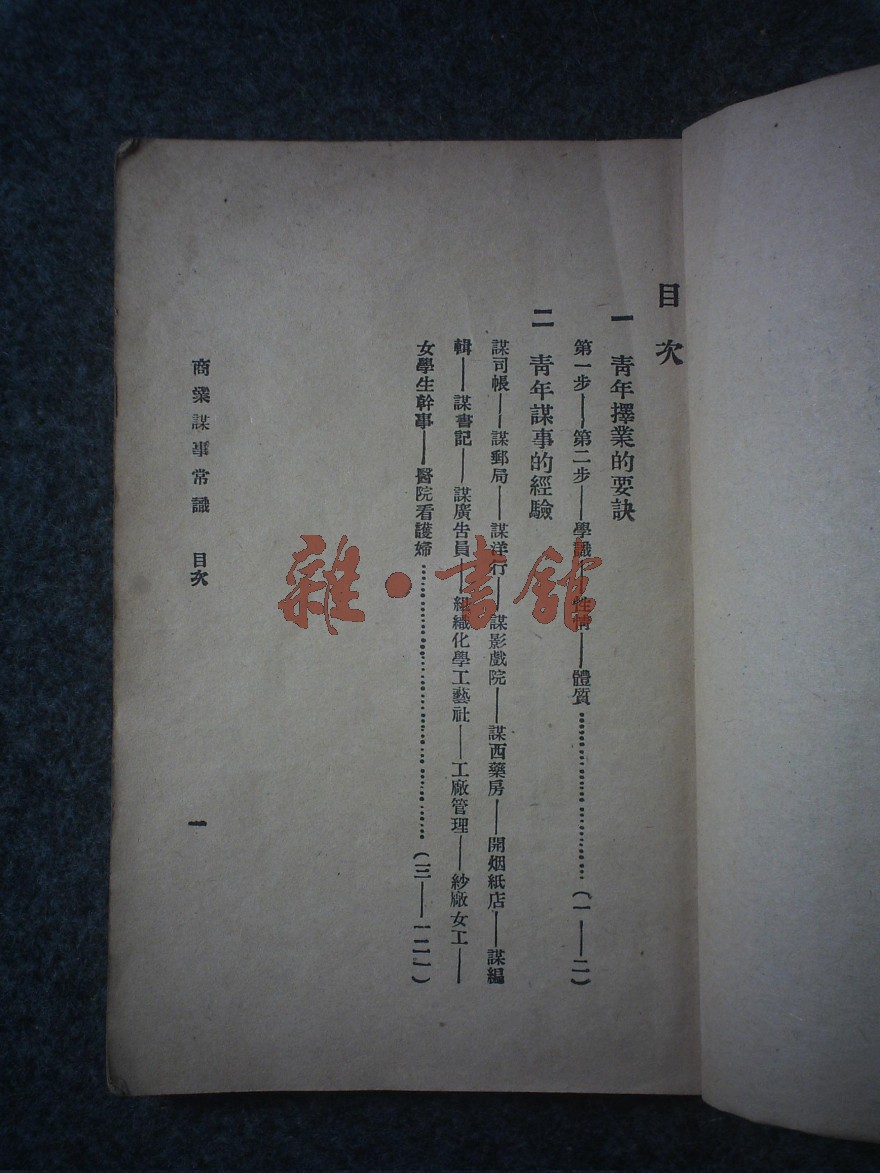 目次
一　青年擇業的要訣
第一步——第二步——學識——性情——體質……………………(一——二)
二　青年謀事的經驗
謀司帳——謀郵局——謀洋行——謀影戲院——謀西藥房——開烟紙店——謀編
輯——謀書記——謀廣告員——組織化學工藝社——工廠管理——紗廠女工——
女學生幹事——醫院看護婦……………………(三——一二一)
商業謀事常識　目次
一
雜·書館